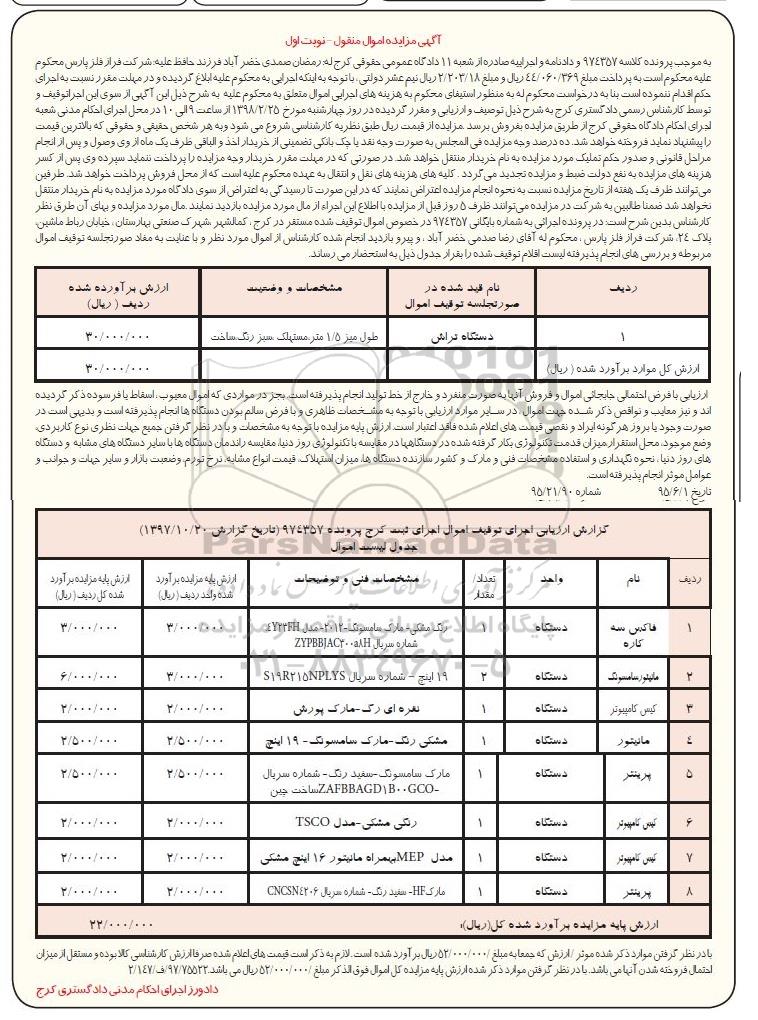 آگهی مزایده اموال منقول - نوبت اول
به موجب پرونده کلاسه ۹۷۴۳۵۷ و دادنامه و اجراییه صادره از شعبه ۱۱ دادگاه عمومی حقوقی کرج له: رمضان صمدی خضر آباد فرزند حافظ علیه: شرکت فراز فلز پارس محکوم
علیه محکوم است به پرداخت مبلغ ۴۴/۰۶۰/۳۶۹ ریال و مبلغ ۲/۲۰۳/۱۸ ریال نیم عشر دولتی ، با توجه به اینکه اجرایی به محکوم علیه ابلاغ گردیده و در مهلت مقرر نسبت به اجرای
حکم اقدام ننموده است بنا به درخواست محکوم له به منظور استیفای محکوم به هزینه های اجرایی اموال متعلق به محکوم علیه به شرح ذیل این آگهی از سوی این اجرا توقیف و
توسط کارشناس رسمی دادگستری کرج به شرح ذیل توصیف و ارزیابی و مقرر گردیده در روز چهارشنبه مورخ ۱۳۹۸/۲/۲۵ از ساعت ۹ الی ۱۰ در محل اجرای احکام مدنی شعبه
اجرای احکام دادگاه حقوقی کرج از طریق مزایده بفروش برسد .مزایده از قیمت ریال طبق نظریه کارشناسی شروع می شود و به هر شخص حقیقی و حقوقی که بالاترین قیمت
را پیشنهاد نماید فروخته خواهد شد. ده درصد وجه مزایده فی المجلس به صورت وجه نقد یا چک بانکی تضمینی از خریدار اخذ و الباقی ظرف یک ماه از وی وصول و پس از انجام
مراحل قانونی و صدور حکم تملیک مورد مزایده به نام خریدار منتقل خواهد شد. در صورتی که در مهلت مقرر خریدار وجه مزایده را پرداخت ننماید سپرده وی پس از کسر
هزینه های مزایده به نفع دولت ضبط و مزایده تجدید می گردد . کلیه های هزینه های نقل و انتقال به عهده محکوم علیه است که از محل فروش پرداخت خواهد شد. طرفین
می‌توانند ظرف یک هفته از تاریخ مزایده نسبت به نحوه انجام مزایده اعتراض نمایند که در این صورت تا رسیدگی به اعتراض از سوی دادگاه مورد مزایده به نام خریدار منتقل
نخواهد شد ضمنا طالبین به شرکت در مزایده می‌توانند ظرف ۵ روز قبل از مزایده با اطلاع این اجراء از مال مورد مزایده بازدید نمایند .مال مورد مزایده و بهای آن طرق نظر
کارشناس بدین شرح است: در پرونده اجرائی به شماره بایگانی ۹۷۴۳۵۷ در خصوص اموال توقیف شده مستقر در کرج ، کمالشهر ،شهرک صنعتی بهارستان ، خیابان رباط ماشین،
پلاک ۲۴، شرکت فراز فلز پارس ، محکوم له آقای رضا صدمی خضر آباد ، و پیرو بازدید انجام شده کارشناس از اموال مورد نظر و با عنایت به مفاد صورتجلسه توقیف اموال
مربوطه و بررسی های انجام پذیرفته لیست اقلام توقیف شده را بقرار جدول ذیل به استحضار می رساند.
ردیف نام قید شده در صورتجلسه توقیف اموال مشخصات و وضعیت ارزش برآورده شده ردیف ( ریال)
۱ دستگاه تراش طول میز ۱/۵ متر،مستهلک ،سبز رنگ،ساخت ۳۰/۰۰۰/۰۰۰
ارزش کل موارد برآورد شده ( ریال) ۳۰/۰۰۰/۰۰۰
ارزیابی با فرض احتمالی جابجائی اموال و فروش آنها به صورت منفرد و خارج از خط تولید انجام پذیرفته است. بجز در مواردی که اموال معیوب ، اسقاط یا فرسوده ذکر گردیده
اند و نیز معایب و نواقص ذکر شده جهت اموال ، در سایر موارد ارزیابی با توجه به مشخصات ظاهری و با فرض سالم بودن دستگاه ها انجام پذیرفته است و بدیهی است در
صورت وجود یا بروز هر گونه ایراد و نقصی قیمت های اعلام شده فاقد اعتبار است. ارزش پایه مزایده با توجه به مشخصات و با در نظر گرفتن جمیع جهات نظری نوع کاربردی،
وضع موجود، محل استقرار میزان قدمت تکنولوژی بکار گرفته شده در دستگاهها در مقایسه با تکنولوژی روز دنیا، مقایسه راندمان دستگاه ها با سایر دستگاه های مشابه و دستگاه
های روز دنیا ، نحوه نگهداری و استفاده مشخصات فنی و مارک و کشور سازنده دستگاه ها، میزان استهلاک، قیمت انواع مشابه، نرخ تورم، وضعیت بازار و سایر جهات و جوانب و
عوامل موثر انجام پذیرفته است.
تاریخ ۹۵/۶/۱ شماره ۹۵/۲۱/۹۰
گزارش ارزیابی اجرای توقیف اموال اجرای ثبت کرج پرونده ۹۷۴۳۵۷ (تاریخ گزارش ۱۳۹۷/۱۰/۲۰)
جدول لیست اموال
ردیف نام واحد تعداد/ مقدار مشخصات فنی و توضیحات ارزش پایه مزایده برآورد شده واحد ردیف ( ریال) ارزش پایه مزایده برآورد شده کل ردیف ( ریال)
۱ فاکس سه کاره دستگاه ۱ رنگ مشکی- مارک سامسونگ-۲۰۱۲- مدل ۴Y۲۳FH شماره سریال ZYPBBJAC۳۰۰a۸H ۳/۰۰۰/۰۰۰ ۳/۰۰۰/۰۰۰
۲ مانیتورسامسونگ دستگاه ۲ ۱۹ اینچ - شماره سریال S۱۹R۲۱۵NPLYS ۳/۰۰۰/۰۰۰ ۶/۰۰۰/۰۰۰
۳ کیس کامپیوتر دستگاه ۱ نقره ای رک-مارک پورش ۲/۰۰۰/۰۰۰ ۲/۰۰۰/۰۰۰
۴ مانیتور دستگاه ۱ مشکی رنگ-مارک سامسونگ- ۱۹ اینچ ۲/۵۰۰/۰۰۰ ۲/۵۰۰/۰۰۰
۵ پرینتر دستگاه ۱ مارک سامسونگ-سفید رنگ- شماره سریال ZAFBBAGD۱B۰۰GCO- ساخت چین ۲/۵۰۰/۰۰۰ ۲/۵۰۰/۰۰۰
۶ کیس کامپیوتر دستگاه ۱ رنگی مشکی-مدل TSCO ۲/۰۰۰/۰۰۰ ۲/۰۰۰/۰۰۰
۷ کیس کامپیوتر دستگاه ۱ مدل MEP بهمراه مانیتور ۱۶ اینچ مشکی ۲/۰۰۰/۰۰۰ ۲/۰۰۰/۰۰۰
۸ پرینتر دستگاه ۱ مارک HF- سفید رنگ- شماره سریال CNCSN۴۲۰۶ ۲/۰۰۰/۰۰۰ ۲/۰۰۰/۰۰۰
ارزش پایه مزایده برآورد شده کل(ریال): ۲۲/۰۰۰/۰۰۰
با در نظر گرفتن موارد ذکر شده موثر / ارزش که جمعا به مبلغ /۵۲/۰۰۰/۰۰۰ ریال برآورد شده است . لازم به ذکر است قیمت های اعلام شده صرفا ارزش کارشناسی کالا بوده و مستقل از میزان
احتمال فروخته شدن آنها می باشد. با در نظر گرفتن موارد ذکر شده ارزش پایه مزایده کل اموال فوق الذکر مبلغ /۵۲/۰۰۰/۰۰۰ ریال می باشد.۹۷/۷۵۵۲۲/ف/۲/۱۴۷
دادورز اجرای احکام مدنی دادگستری کرج
ParsNamadData
پایگاه اطلاع رسانی مناقصه و مزایده
۰۲۱-۸۸۳۴۹۶۷۰-۵